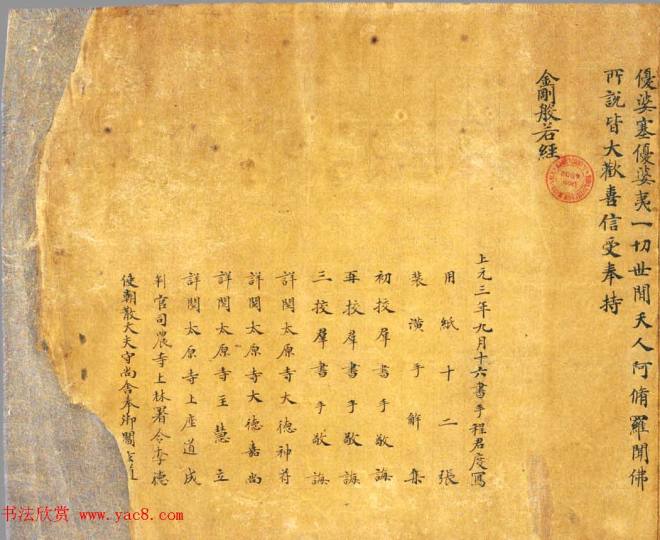 優婆塞優婆夷一切世閒天人阿脩羅聞佛
所說皆大歡喜信受奉持
金剛般若經
上元三年九月十六書手程君度寫
用紙十二張
裝潢手解集
初校羣書手敬誨
再校羣書手敬誨
三校羣書手敬誨
詳閱太原寺大德神苻
詳閱太原寺大德嘉尚
詳閱太原寺主慧立
詳閱太原寺上座道成
判官司農寺上林署令李德
使朝散大夫守尚舍奉御閻玄道
书法欣赏 www.yac8.com